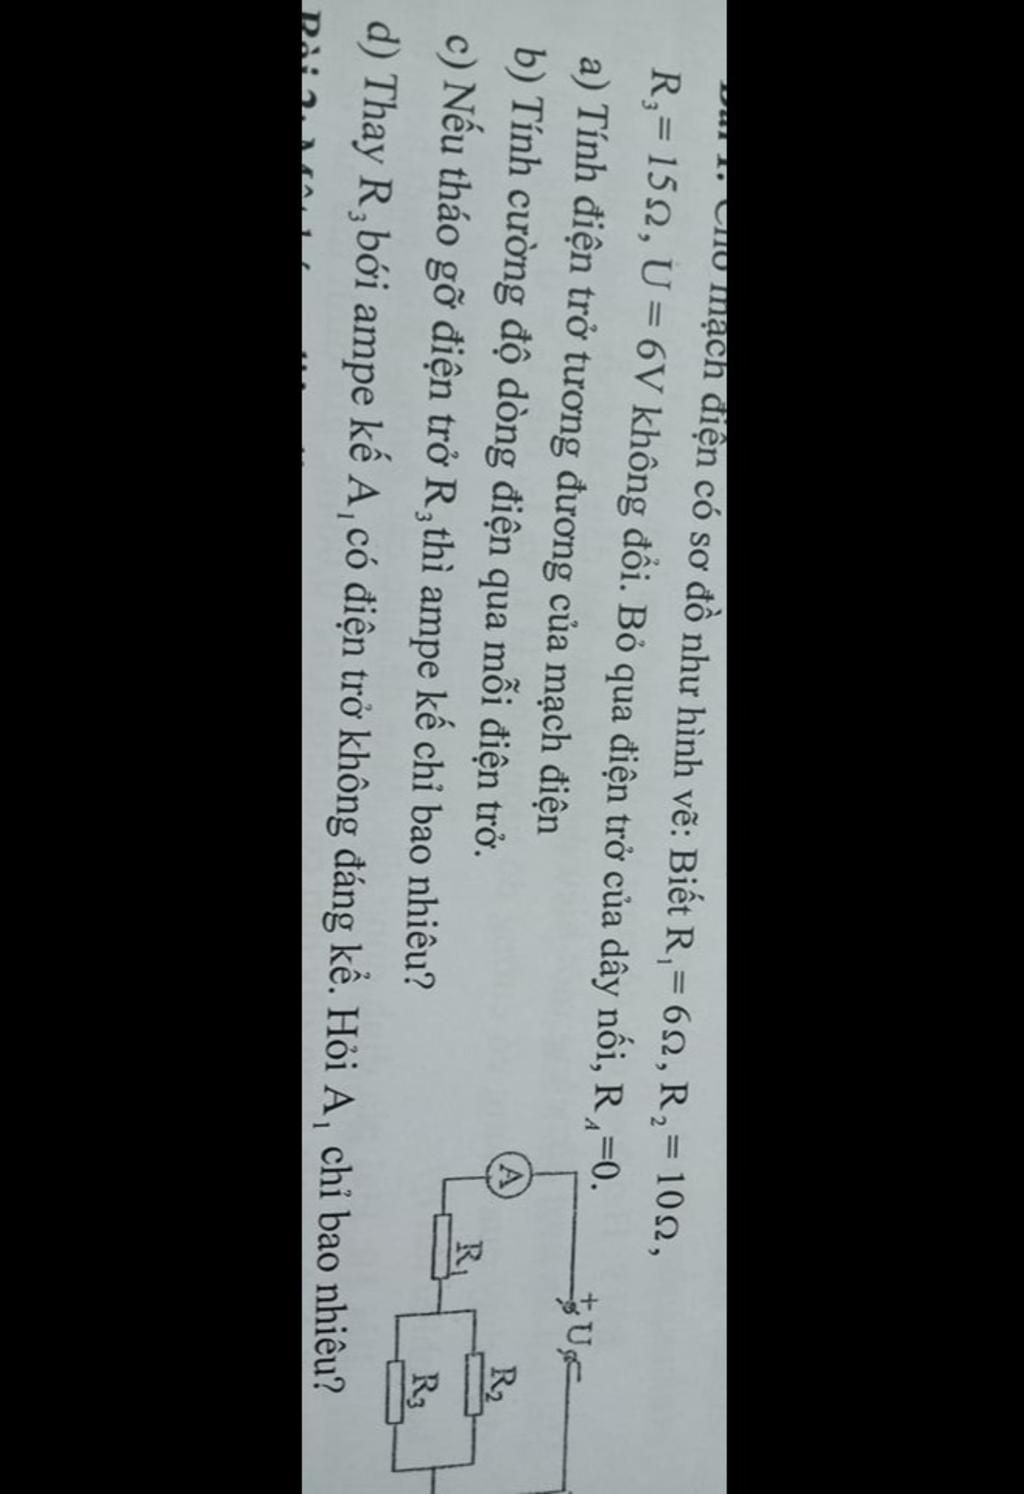 mạch điện có sơ đồ như hình vẽ: Biết R₁ = 6Ω, R₂ = 10Ω,
R₃ = 15Ω, U = 6V không đổi. Bỏ qua điện trở của dây nối, R_A =0.
a) Tính điện trở tương đương của mạch điện
b) Tính cường độ dòng điện qua mỗi điện trở.
c) Nếu tháo gỡ điện trở R₃ thì ampe kế chỉ bao nhiêu?
d) Thay R₃ bới ampe kế A₁ có điện trở không đáng kể. Hỏi A₁ chỉ bao nhiêu?
+ U
A
R₁
R₂
R₃